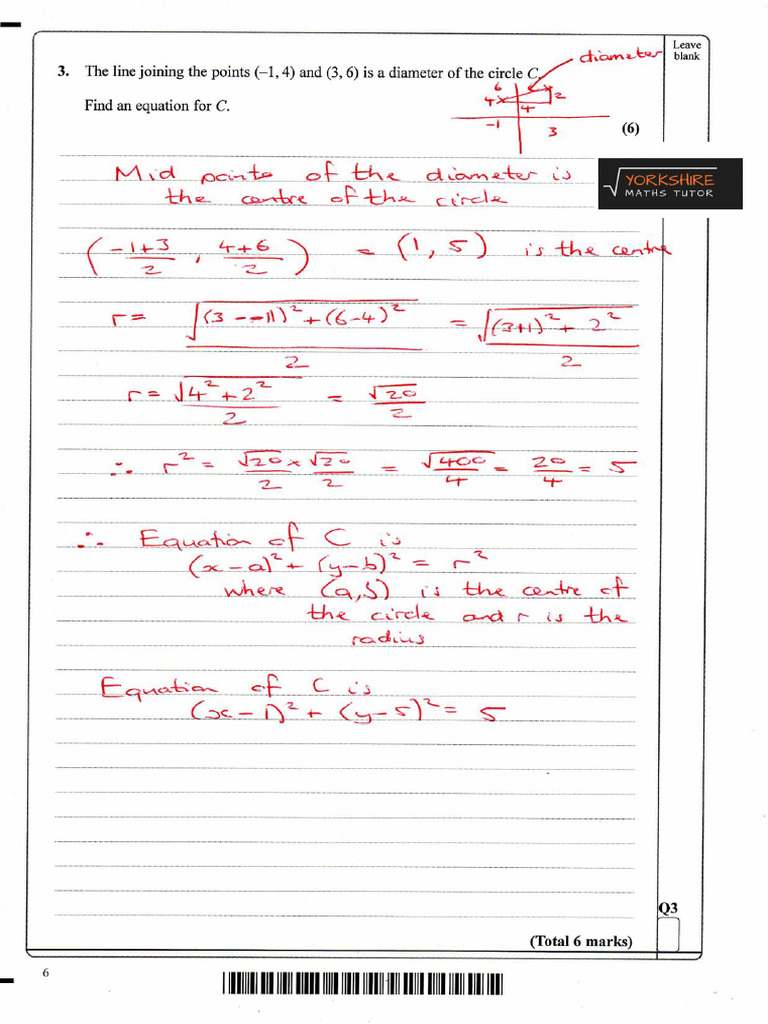 Leave
blank
3. The line joining the points (–1, 4) and (3, 6) is a diameter of the circle C.
diameter
Find an equation for C.
6
4
2
4
-1
3
(6)
Mid points of the diameter is
the centre of the circle
√YORKSHIRE
MATHS TUTOR
((-1+3)/2 , (4+6)/2) = (1, 5) is the centre
r = √((3--1)² + (6-4)²)/2 = √((3+1)² + 2²)/2
r = √(4² + 2²)/2 = √20/2
∴ r² = √20/2 × √20/2 = √400/4 = 20/4 = 5
∴ Equation of C is
(x-a)² + (y-b)² = r²
where (a,b) is the centre of
the circle and r is the
radius
Equation of C is
(x-1)² + (y-5)² = 5
Q3
(Total 6 marks)
6